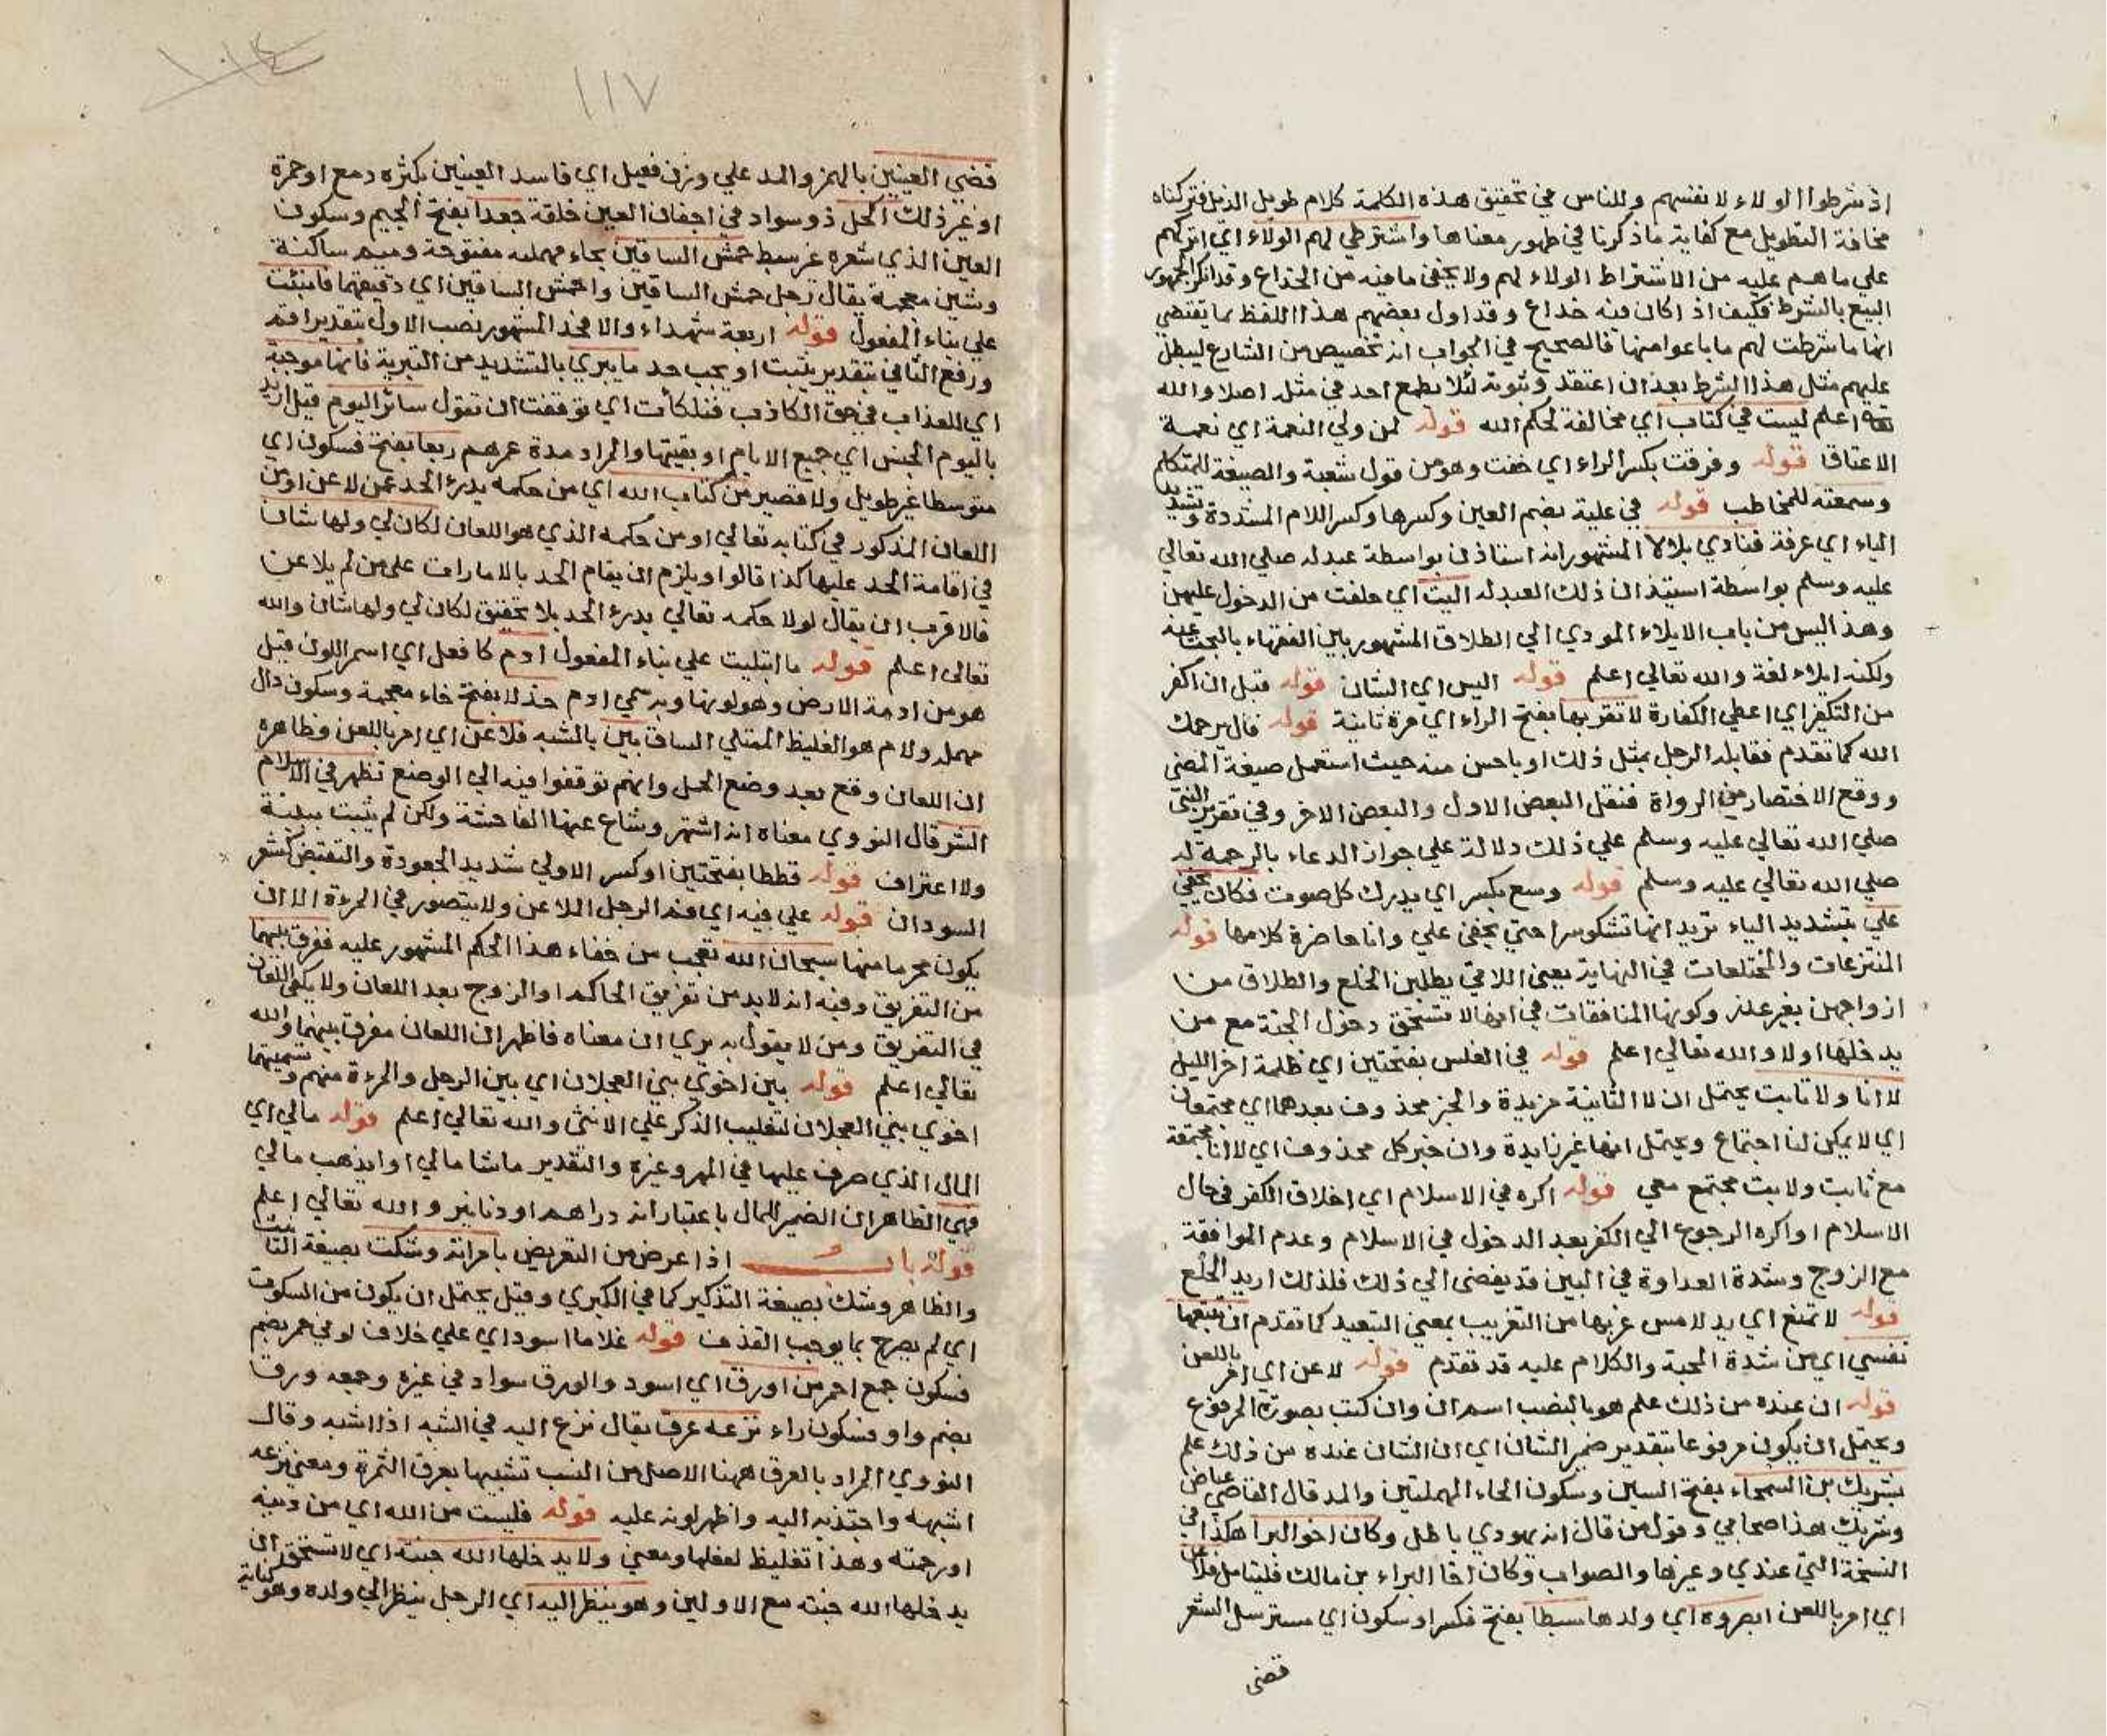 اذ شرطوا الولاء لانفسهم وللناس في تحقيق هذه الكلمة كلام طويل الذيل فتركناه
مخافة التطويل مع كفاية ما ذكرنا في ظهور معناها واشترطي لهم الولاء اي اتركهم
علي ما هم عليه من الاشتراط الولاء لهم ولا يخفى ما فيه من الخداع وقد انكر الجمهور
البيع بالشرط فكيف اذا كان فيه خداع وقد اول بعضهم هذا اللفظ بما يقتضي
انها ما شرطت لهم ما باعوا منها فالصحيح في الجواب انه تخصيص من الشارع ليبطل
عليهم مثل هذا الشرط بعد ان اعتقد وثبوته لئلا يطمع احد في مثله اصلا والله
اعلم ليست في كتاب اي مخالفة لحكم الله قوله لمن ولي النعمة اي نعمة
الاعتاق قوله وفرقت بكسر الراء اي خفت وهو من قول شعبة والصيغة للمتكلم
وسمعته للمخاطب قوله في علية بضم العين وكسرها وكسر اللام المشددة وتشديد
الياء اي غرفة فنادي بلالا المشهور انه استاذن بواسطة عبد له صلي الله تعالي
عليه وسلم بواسطة استيذان ذلك العبد له البيت اي حلفت من الدخول عليهن
وهذا ليس من باب الايلاء المودي الي الطلاق المشهور بين الفقهاء بالبحث عنه
ولكنه ايلاء لغة والله تعالي اعلم قوله اليس اي الشان قوله قبل ان اكفر
من التكفير اي اعطي الكفارة لا تقربها بفتح الراء اي مرة ثانية قوله قال يرحمك
الله كما تقدم فقابله الرجل بمثل ذلك او باحسن منه حيث استعمل صيغة المضي
ووقع الاختصار من الرواة فنقل البعض الاول والبعض الاخر وفي تقرير النبي
صلي الله تعالي عليه وسلم علي ذلك دلالة علي جواز الدعاء بالرحمة له
صلي الله تعالي عليه وسلم قوله وسع بكسر اي يدرك كل صوت فكان يخفي
علي بتشديد الياء تريد انها تشكو سرا حتي يخفى علي وانا حاضرة كلامها قوله
المنتزعات والمختلعات في النهاية يعني اللاتي يطلبن الخلع والطلاق من
ازواجهن بغير عذر وكونها المنافقات في انها لا تستحق دخول الجنة مع من
يدخلها اولا والله تعالي اعلم قوله في الغلس بفتحتين اي ظلمة اخر الليل
لا انا ولا ثابت يحتمل ان لا الثانية مزيدة والخبر محذوف بعدهما اي مجتمعان
اي لا يمكن لنا اجتماع ويحتمل انها غير زايدة وان خبر كل محذوف اي لا انا مجتمعة
مع ثابت ولا ثابت مجتمع معي قوله اكره في الاسلام اي اخلاق الكفر في حال
الاسلام او اكره الرجوع الي الكفر بعد الدخول في الاسلام وعدم الموافقة
مع الزوج وشدة العداوة في البين قد يفضي الي ذلك فلذلك اريد الخلع
قوله لا تمنع اي يد لامس غربها من التغريب بمعني التبعيد كما تقدم ان تتبعها
نفسي اي من شدة المحبة والكلام عليه قد تقدم قوله لاعن اي امر باللعن
قوله ان عنده من ذلك علم هو بالنصب اسم ان وان كتب بصورة المرفوع
ويحتمل ان يكون مرفوعا بتقدير ضمير الشان اي ان الشان عنده من ذلك علم
بشريك بن السحماء بفتح السين وسكون الحاء المهملتين والمد قال القاضي عياض
وشريك هذا صحابي وقول من قال انه يهودي باطل وكان اخو البراء هكذا في
النسخة التي عندي وغيرها والصواب وكان اخا البراء بن مالك فليتامل فلاعن
اي امر باللعن ابصروه اي ولدها سبطا بفتح فكسر او سكون اي مسترسل الشعر
قضئ
١١٧
قضي العينين بالهمز والمد علي وزن فعيل اي فاسد العينين بكثرة دمع او حمرة
او غير ذلك اكحل ذو سواد في اجفان العين خلقة جعدا بفتح الجيم وسكون
العين الذي شعره غير سبط حمش الساقين بحاء مهملة مفتوحة وميم ساكنة
وشين معجمة يقال رجل حمش الساقين واحمش الساقين اي دقيقهما فانبئت
علي بناء المفعول قوله اربعة شهداء والا فحد المشهور نصب الاول بتقدير اقم
ورفع الثاني بتقدير يثبت او يجب حد ما يبري بالتشديد من التبرية فانها موجبة
اي للعذاب في حق الكاذب فتلكأت اي توقفت ان تقول سائر اليوم قيل اريد
باليوم الجنس اي جميع الايام او بقيتها والمراد مدة عمرهم ربعا بفتح فسكون اي
متوسطا غير طويل ولا قصير من كتاب الله اي من حكمه يدرئ الحد عمن لاعن او من
اللعان المذكور في كتابه تعالي او من حكمه الذي هو اللعان لكان لي ولها شان
في اقامة الحد عليها كذا قالوا ويلزم ان يقام الحد بالامارات علي من لم يلاعن
فالاقرب ان يقال لولا حكمه تعالي يدرئ الحد بلا تحقيق لكان لي ولها شان والله
تعالي اعلم قوله ما ابتليت علي بناء المفعول ادم كافعل اي اسمر اللون قيل
هو من ادمة الارض وهو لونها وبه سمي ادم خدلا بفتح خاء معجمة وسكون دال
مهملة ولام هو الغليظ الممتلي الساق بين بالمشبه فلاعن اي امر باللعن وظاهره
ان اللعان وقع بعد وضع الحمل وانهم توقفوا فيه الي الوضع تظهر في الاسلام
الشر قال النووي معناه انه اشتهر وشاع عنها الفاحشة ولكن لم يثبت ببينة
ولا اعتراف قوله قططا بفتحتين او كسر الاولي شديد الجعودة والتقبض كشعر
السودان قوله علي فيه اي فم الرجل الملاعن ولا يتصور في المرءة الا ان
يكون محرما منها سبحان الله تعجب من خفاء هذا الحكم المشهور عليه ففرق بينهما
من التفريق وفيه انه لابد من تفريق الحاكم او الزوج بعد اللعان ولا يكفي اللعان
في التفريق ومن لا يقول به يري ان معناه فاظهر ان اللعان مفرق بينهما والله
تعالي اعلم قوله بين اخوي بني العجلان اي بين الرجل والمرءة منهم وتسميتهما
اخوي بني العجلان لتغليب الذكر علي الانثى والله تعالي اعلم قوله مالي اي
المال الذي صرفت عليها في المهر وغيره والتقدير ما شا مالي او ايذهب مالي
فهي الظاهر ان الضمير للمال باعتبار انه دراهم او دنانير والله تعالي اعلم
قوله باب اذا عرض من التعريض بامراته وشكت بصيغة التانيث
والظاهر وشك بصيغة التذكير كما في الكبري وقيل يحتمل ان يكون من السكوت
اي لم يصرح بما يوجب القذف قوله غلاما اسود اي علي خلاف لوني حمر بضم
فسكون جمع احمر من اورق اي اسود والورق سواد في غبرة وجمعه ورق
بضم واو فسكون راء نزعه عرق يقال نزع اليه في الشبه اذا اشبه وقال
النووي المراد بالعرق ههنا الاصل من النسب تشبيها بعرق الثمرة ومعني نزعه
اشبهه واجتذبه اليه واظهر لونه عليه قوله فليست من الله اي من دينه
او رحمته وهذا تغليظ لفعلها ومعني ولا يدخلها الله جنته اي لا تستحق ان
يدخلها الله جنته مع الاولين وهو ينظر اليه اي الرجل ينظر الي ولده وهو كناية